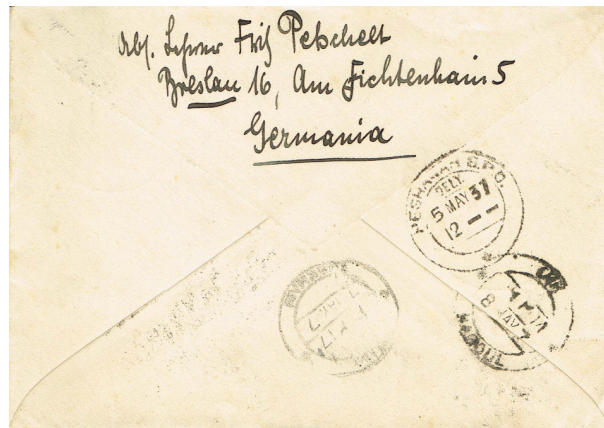 Abs. Lehrer Fritz Petschelt
Breslau 16, Am Fichtenhain 5
Germania
PESHAWAR G.P.O.
DELY.
5 MAY 37
12